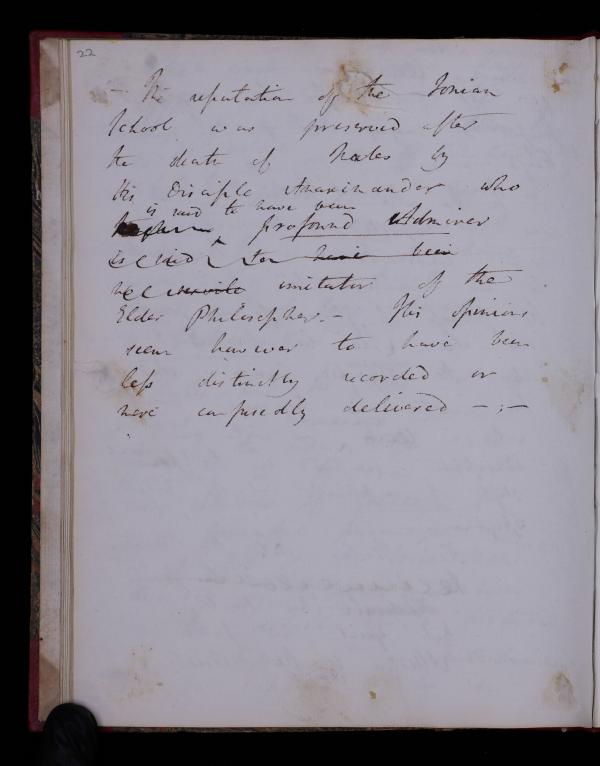 22
– The reputation of the Ionian
School was preserved after
the death of Thales by
His Disciple Anaximander who
is said to have been
profound Admirer
is said to have been
servile imitator of the
Elder Philosopher. – His opinions
seem however to have been
less distinctly recorded or
more confusedly delivered – ; –